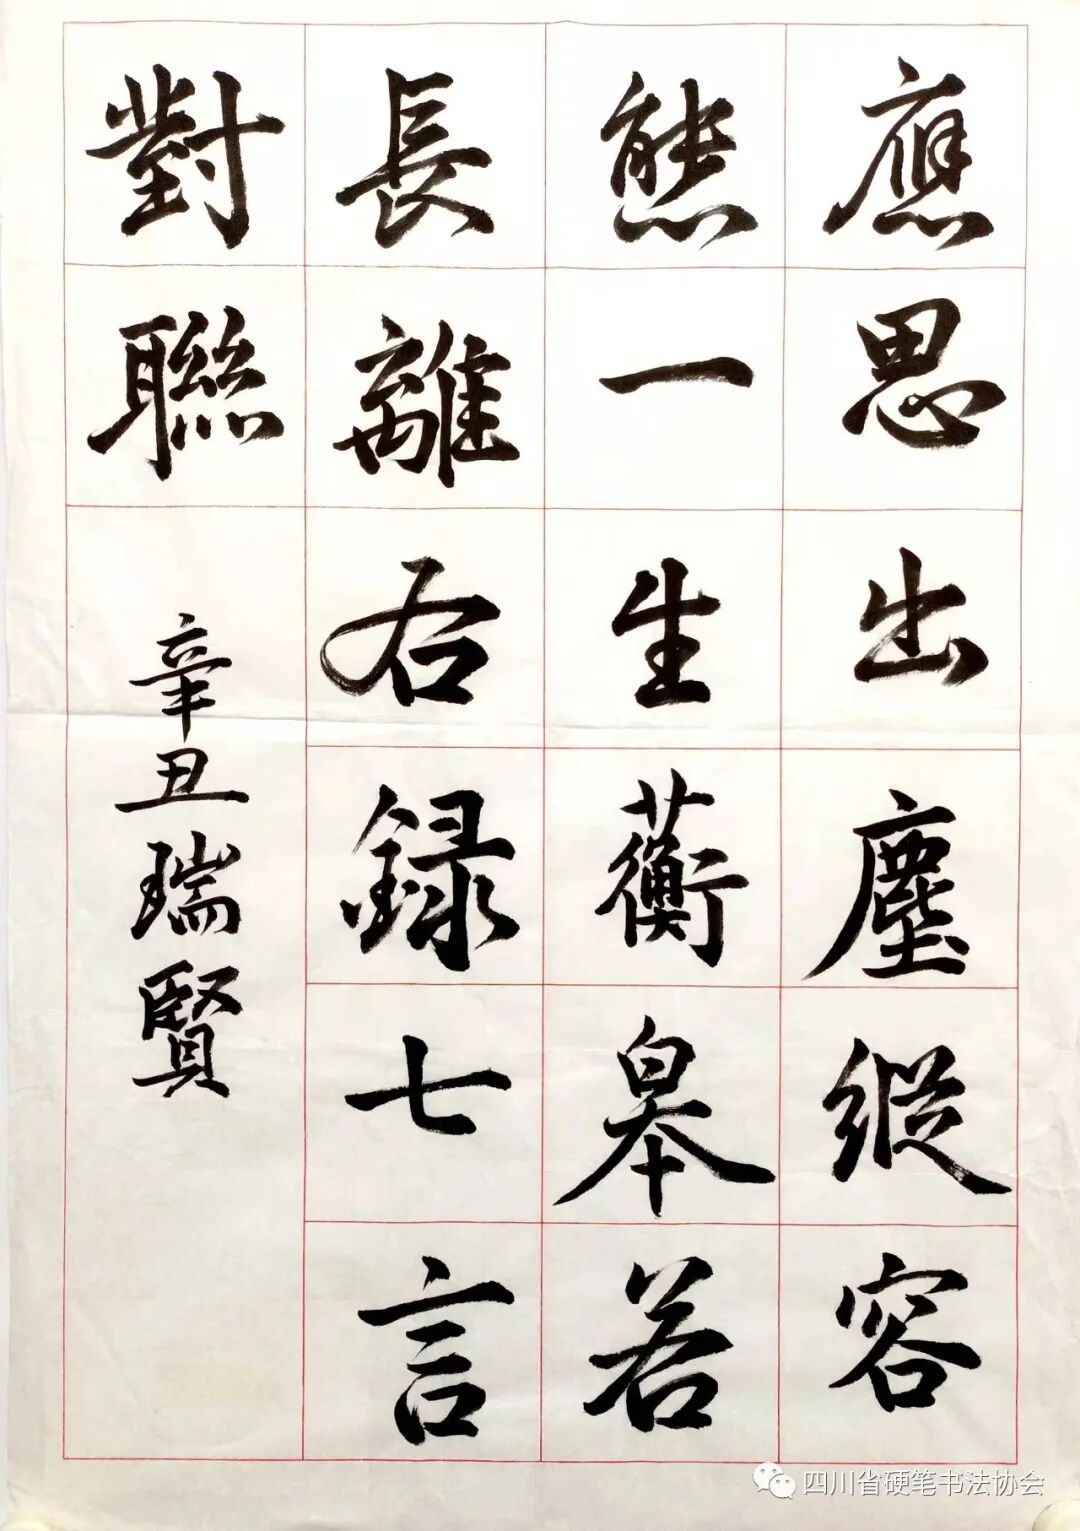 應思出塵縱容
態一生蘅皋若
長離右錄七言
對聯
辛丑瑞賢
四川省硬笔书法协会